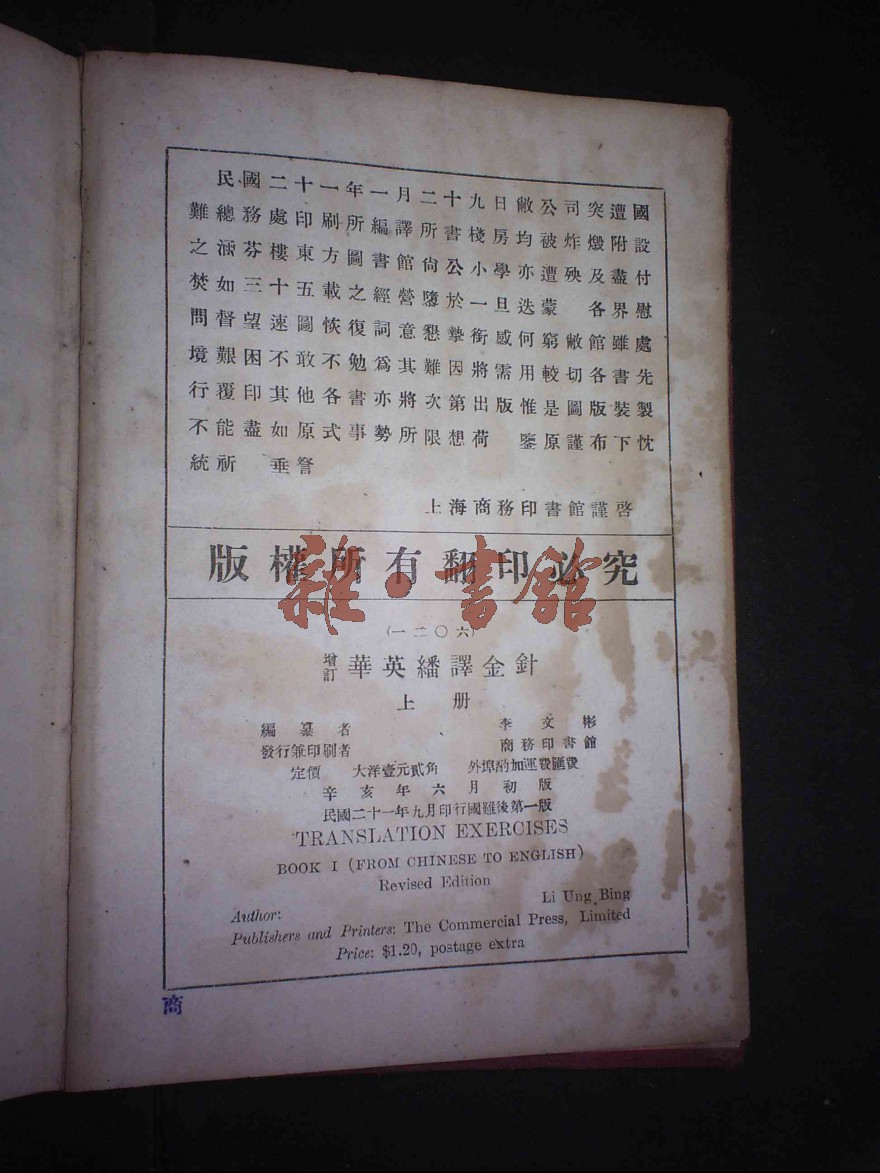 民國二十一年一月二十九日敝公司突遭國
難總務處印刷所編譯所書棧房均被炸燬附設
之涵芬樓東方圖書館尙公小學亦遭殃及盡付
焚如三十五載之經營隳於一旦迭蒙 各界慰
問督望速圖恢復詞意懇摯銜感何窮敝館雖處
境艱困不敢不勉爲其難因將需用較切各書先
行覆印其他各書亦將次第出版惟是圖版裝製
不能盡如原式事勢所限想荷 鑒原謹布下忱
統祈 垂詧
上海商務印書館謹啓
版權所有翻印必究
雜·書館
(一二〇六)
增訂 華英繙譯金針
上册
編纂者 李文彬
發行兼印刷者 商務印書館
定價 大洋壹元貳角 外埠酌加運費匯費
辛亥年六月初版
民國二十一年九月印行國難後第一版
TRANSLATION EXERCISES
BOOK I (FROM CHINESE TO ENGLISH)
Revised Edition
Author: Li Ung Bing
Publishers and Printers: The Commercial Press, Limited
Price: $1.20, postage extra
商